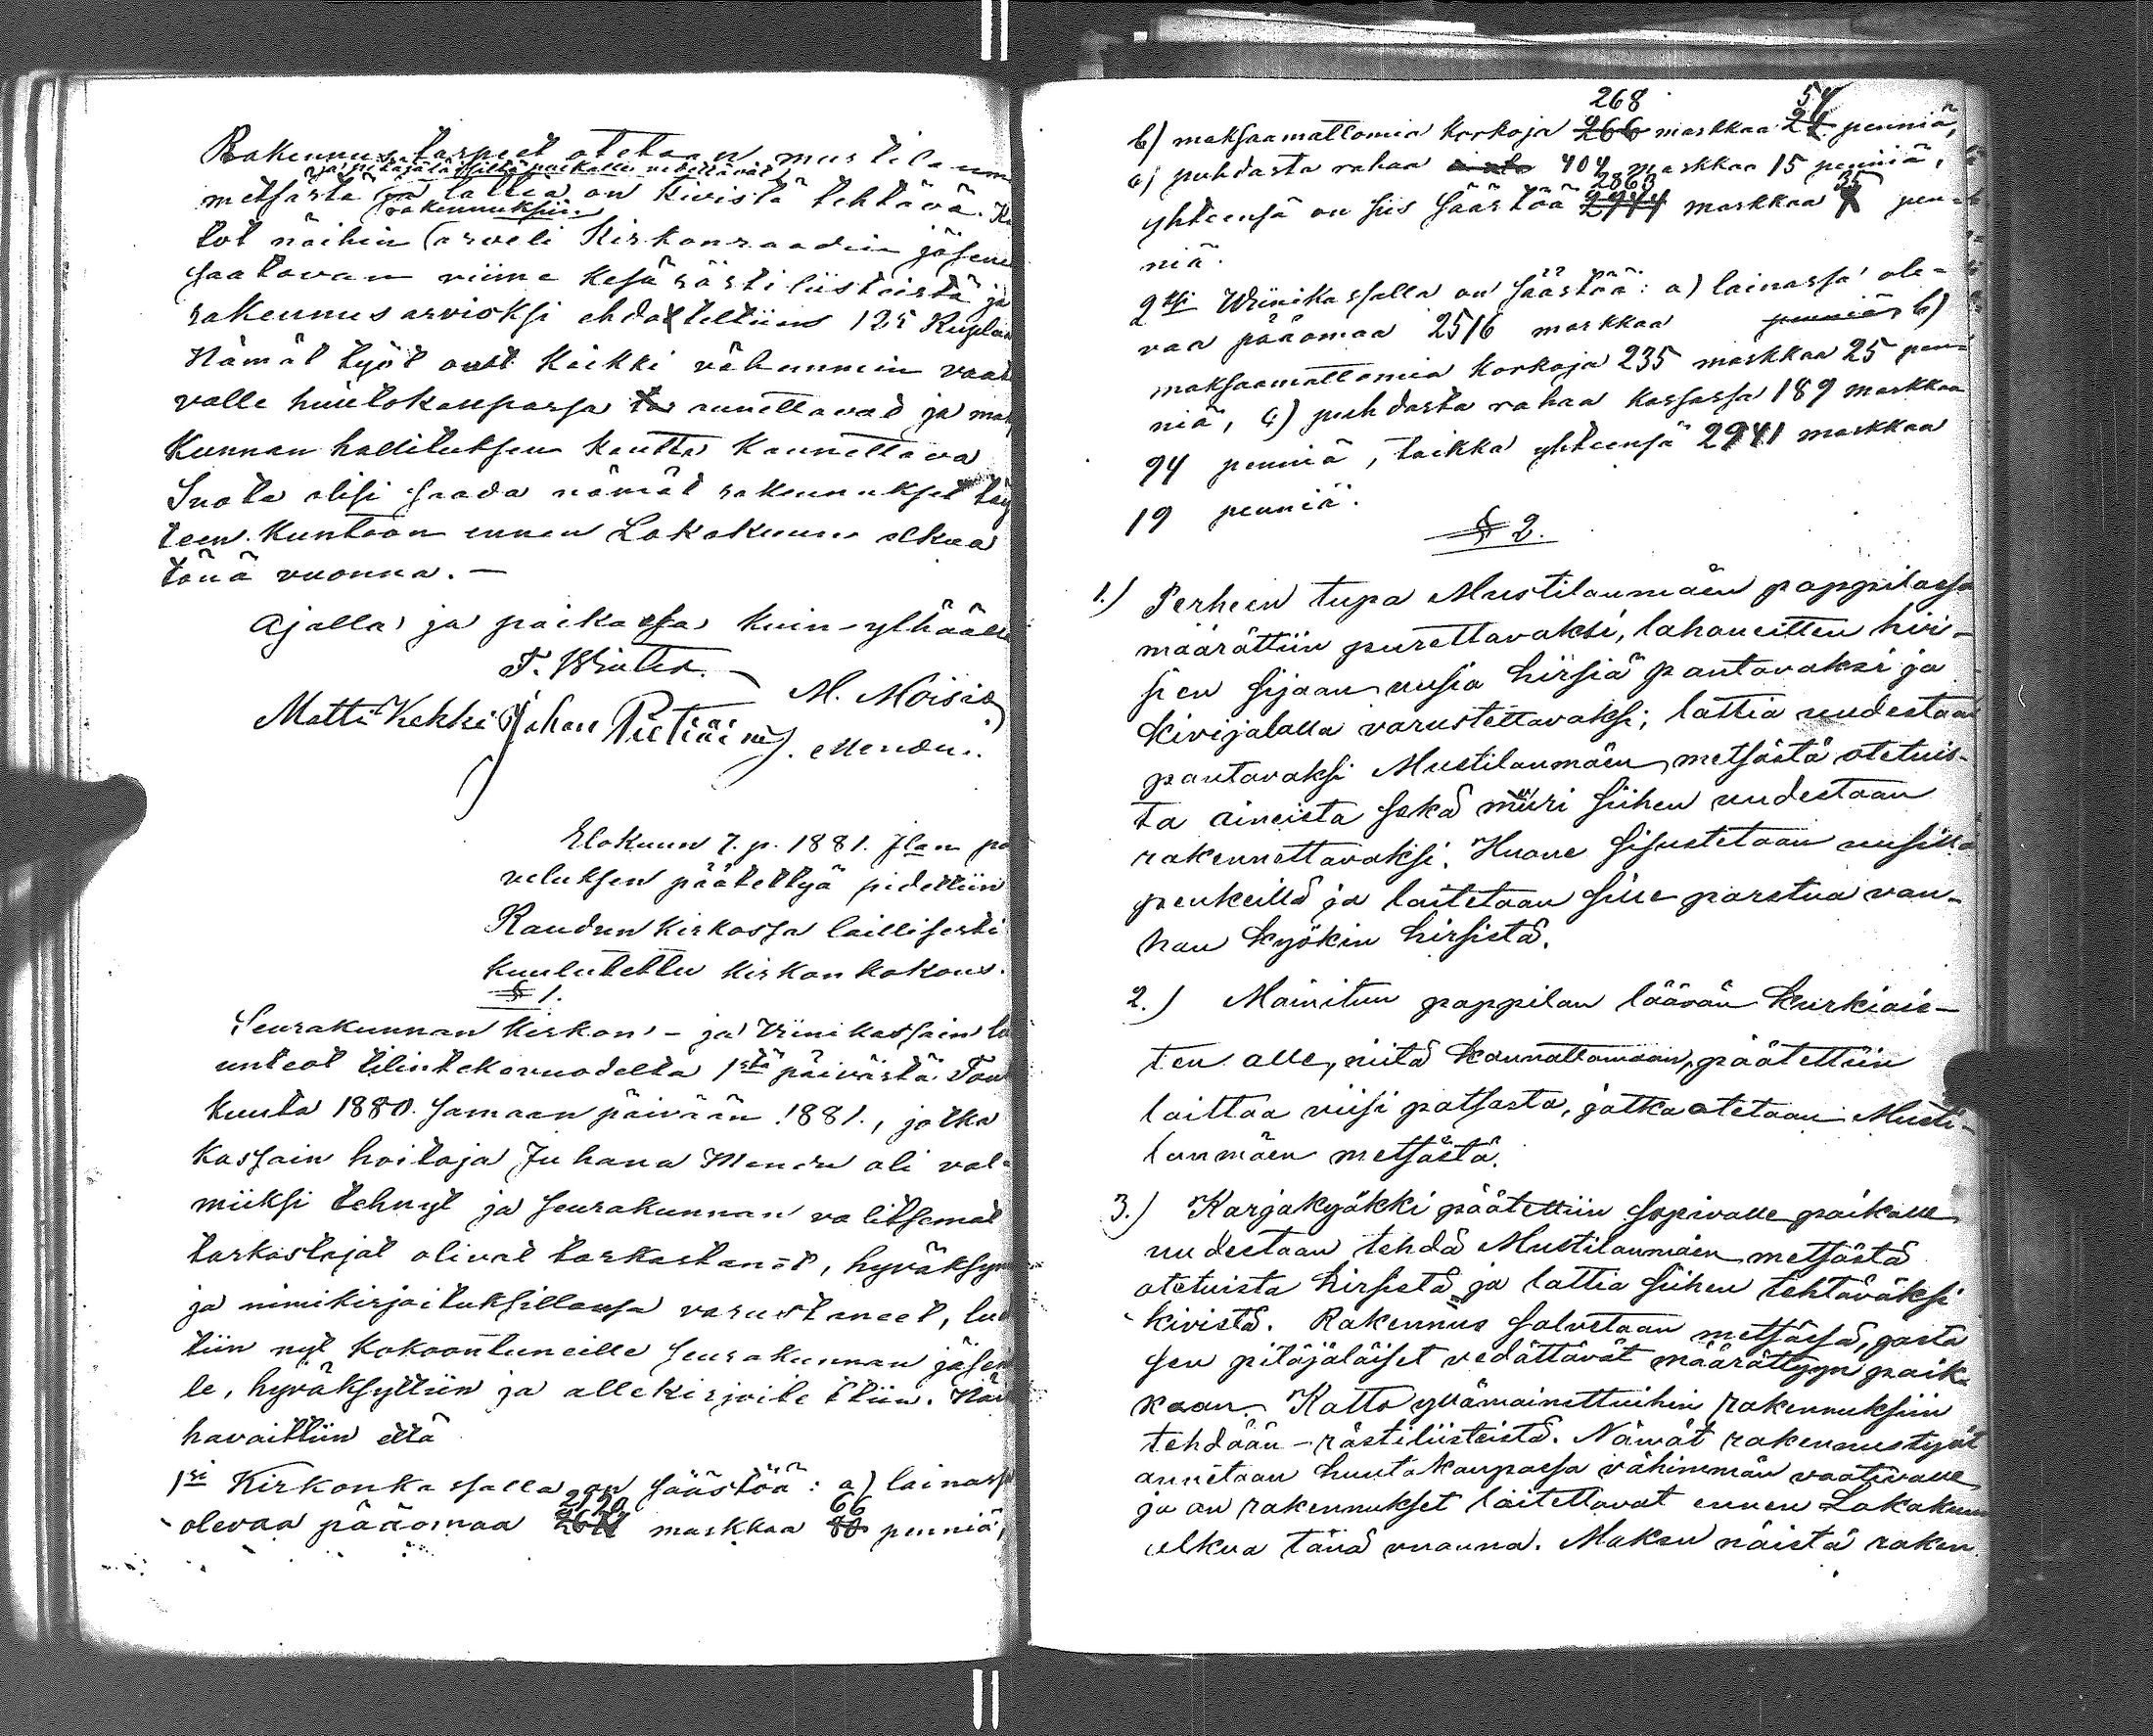 Rakennus tarpeet otetaan mustilanm
ja pitäjäläisiltä paikalle vedettävät,
metsästä ja lattia on Kivistä tehtävä. Ka
rakennuksiin
tot näihin arveli Kirkonraadin jäsene
saatavan viime kesä rästiliistoista ja
rakennus arvioksi ehdoteltiin 125 Ruplaa
Nämät työt ovat Kaikki vähemmin vaati
valle huutokaupassa annettavat ja maa
Kunnan hallituksen kautta Kannettava
Suota olisi saada nämät rakennukset täy
teen Kuntoon ennen Lokakuun alkua
tänä vuonna. —
Ajalla ja paikassa kuin ylhäällä
F. Winter.
M. Moisia
Matti Kekki Johan Pietiäinen J. Mendu..
Elokuun 7. p. 1881. Jlan pa
veluksen päätettyä pidettiin
Raudun kirkossa laillisesti
kuulutettu kirkon kokous.
§ 1.
Seurakunnan Kirkon- ja Viinikassain la
unteot tilintekovuodelta 1stä päivästä Tou
kuuta 1880. samaan päivään 1881., jotka
Kassain hoitaja Juhana Mendu oli val-
miiksi tehnyt ja seurakunnan valitsemat
tarkastajat olivat tarkastaneet, hyväksyn
ja nimikirjoituksillansa varustaneet, lue
tiin nyt Kokoontuneille seurakunnan jäsen
le, hyväksyttiin ja allekirjoitettiin. Näi
havaittiin että
1si Kirkonkassalla on säästöä: a) lainassa
2120 66
olevaa pääomaa markkaa 80 penniä,
268 54
b) maksaamattomia korkoja 266 markkaa 24 penniä,
c) puhdasta rahaa 404 markkaa 15 penniä,
2863 35
yhteensä on siis säästöä markkaa pen-
niä.
2ksi Wiinikassalla on säästöä: a) lainassa ole-
vaa pääomaa 2516 markkaa penniä b)
maksaamattomia korkoja 235 markkaa 25 pen-
niä, c) puhdasta rahaa kassassa 189 markkaa
94 penniä, taikka yhteensä 2941 markkaa
19 penniä.
§ 2.
1.) Perheen tupa Mustilanmäen pappilassa
määrättiin purettavaksi, lahoneitten hir-
sien sijaan uusia hirsiä pantavaksi ja
kivijalalla varustettavaksi; lattia uudestaan
pantavaksi Mustilanmäen metsästä otetuis-
ta aineista sekä muuri siihen uudestaan
rakennettavaksi. Huone sisustetaan uusilla
penkeillä ja laitetaan sille porstua van-
han kyökin hirsistä.
2.) Mainitun pappilan läävän kurkiais-
ten alle, niitä kannattamaan, päätettiin
laittaa viisi patsasta, jotka otetaan Musti-
lanmäen metsästä.
3.) Karjakyökki päätettiin sopivalle paikalle
uudestaan tehdä Mustilanmäen metsästä
otetuista hirsistä ja lattia siihen tehtäväksi
kivistä. Rakennus salvetaan metsässä, josta
sen pitäjäläiset vedättävät määrättyyn paik-
kaan. Katto yllämainittuihin rakennuksiin
tehdään rästiliisteistä. Nämät rakennustyöt
annetaan huutokaupassa vähimmän vaativalle
ja on rakennukset laitettavat ennen Lokakuun
alkua tänä vuonna. Maksu näistä raken